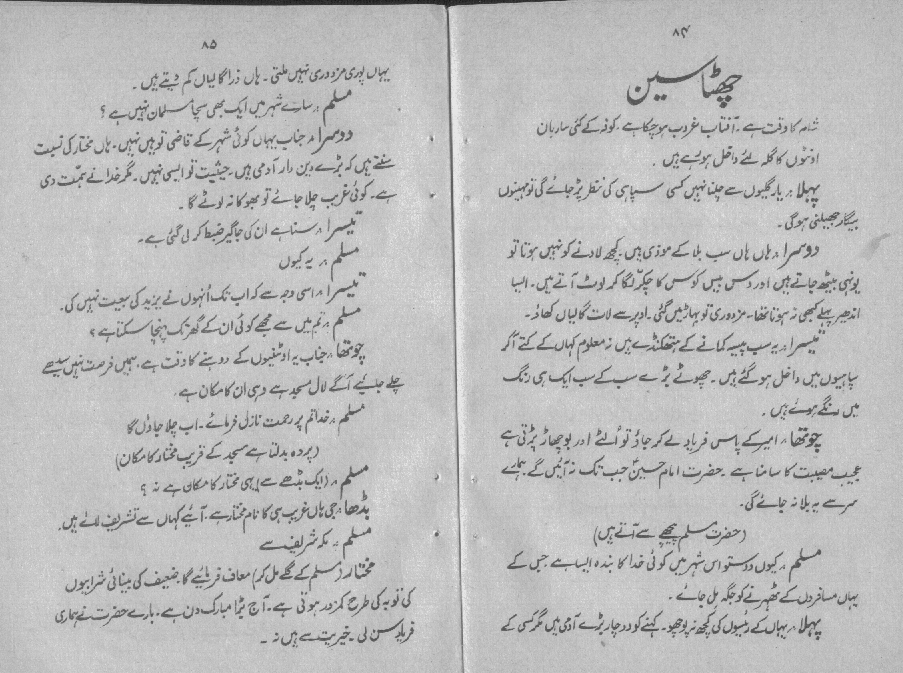 ۸۴
چھٹا سین
شام کا وقت ہے۔ آفتاب غروب ہوچکا ہے۔ کوفہ کے کئی ساربان
اونٹوں کا گلہ لئے داخل ہو رہے ہیں۔
پہلا:۔ یار گلیوں سے چلنا نہیں کسی سپاہی کی نظر پڑ جائے گی تو مہینوں
بیگار جھیلنی ہوگی۔
دوسرا:۔ ہاں ہاں سب بلا کے موذی ہیں۔ کچھ لادنے کو نہیں ہوتا تو
یونہی بیٹھ جاتے ہیں اور دس بیس کوس کا چکر لگا کر لوٹ آتے ہیں۔ ایسا
اندھیر پہلے کبھی نہ ہوتا تھا۔ مزدوری تو بھاڑ میں گئی۔ اوپر سے لات گالیاں کھاؤ۔
تیسرا:۔ یہ سب پیسہ کمانے کے ہتھکنڈے ہیں نہ معلوم کہاں کے کتے آکر
سپاہیوں میں داخل ہو گئے ہیں۔ چھوٹے بڑے سب کے سب ایک ہی رنگ
میں رنگے ہوئے ہیں۔
چوتھا:۔ امیر کے پاس فریاد لے کر جاؤ تو اُلٹے اور بوچھاڑ پڑتی ہے
عجیب مصیبت کا سامنا ہے۔ حضرت امام حسینؑ جب تک نہ آئیں گے ہمارے
سر سے یہ بلا نہ جائے گی۔
(حضرت مسلم پیچھے سے آتے ہیں)
مسلم:۔ کیوں دوستو اس شہر میں کوئی خدا کا بندہ ایسا ہے جس کے
یہاں مسافروں کے ٹھہرنے کو جگہ مل جائے۔
پہلا:۔ یہاں کے رئیسوں کی کچھ نہ پوچھو۔ کہنے کو دو چار بڑے آدمی ہیں مگر کسی کے
۸۵
یہاں پوری مزدوری نہیں ملتی۔ ہاں ذرا گالیاں کم دیتے ہیں۔
مسلم:۔ سارے شہر میں ایک بھی سچا مسلمان نہیں ہے؟
دوسرا:۔ جناب یہاں کوئی شہر کے قاضی تو ہیں نہیں۔ ہاں مختار کی نسبت
سنتے ہیں کہ بڑے دین دار آدمی ہیں۔ حیثیت تو ایسی نہیں۔ مگر خدا نے ہمت دی
ہے۔ کوئی غریب چلا جائے تو بھوکا نہ لوٹے گا۔
تیسرا:۔ سنا ہے ان کی جاگیر ضبط کر لی گئی ہے۔
مسلم:۔ یہ کیوں
تیسرا:۔ اسی وجہ سے کہ اب تک اُنہوں نے یزید کی بیعت نہیں کی۔
مسلم:۔ تم میں سے مجھے کوئی ان کے گھر تک پہنچا سکتا ہے؟
چوتھا:۔ جناب یہ اونٹنیوں کے دوہنے کا وقت ہے۔ ہمیں فرصت نہیں سیدھے
چلے جائیے آگے لال مسجد ہے وہی ان کا مکان ہے۔
مسلم:۔ خدا تم پر رحمت نازل فرمائے۔ اب چلا جاؤں گا
(پردہ بدلتا ہے مسجد کے قریب مختار کا مکان)
مسلم:۔ (ایک بڈھے سے) یہی مختار کا مکان ہے نہ؟
بڈھا:۔ جی ہاں غریب ہی کا نام مختار ہے۔ آئیے کہاں سے تشریف لائے ہیں۔
مسلم:۔ مکہ شریف سے
مختار:۔ (مسلم کے گلے مل کر) معاف فرمائیے گا۔ ضعیف کی بینائی شرابیوں
کی توبہ کی طرح کمزور ہوتی ہے۔ آج بڑا مبارک دن ہے۔ بارے حضرت نے ہماری
فریاد سن لی۔ خیریت سے ہیں نہ۔